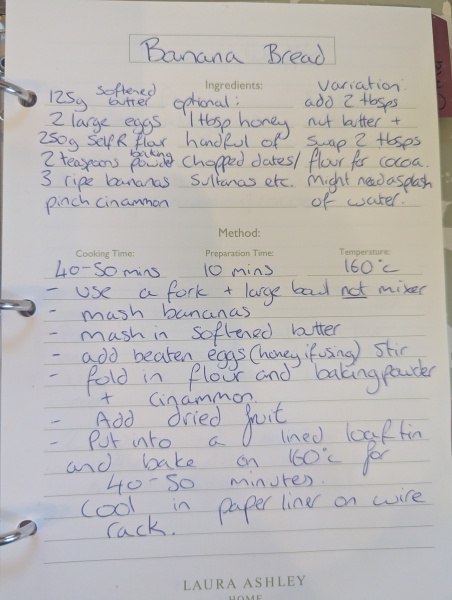 Banana Bread
Ingredients:
125g softened butter
2 large eggs
250g Self R flour
2 teaspoons baking powder
3 ripe bananas
pinch cinammon
optional:
1 tbsp honey
handful of
chopped dates/
Sultanas etc.
Variation:
add 2 tbsps
nut butter +
swap 2 tbsps
flour for cocoa.
might need a splash
of water.
Method:
Cooking Time:
40-50 mins
Preparation Time:
10 mins
Temperature:
160°c
- use a fork + large bowl not mixer
- mash bananas
- mash in softened butter
- add beaten eggs (honey if using) Stir
- fold in flour and baking powder
+ cinammon.
- Add dried fruit
- Put into a lined loaf tin
and bake on 160°c for
40-50 minutes.
Cool in paper liner on wire
rack.
LAURA ASHLEY
HOME